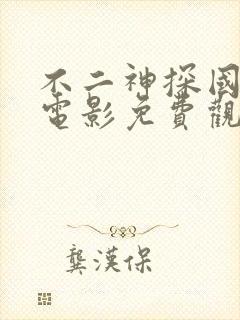 不二神探國
電影免費觀
龔漢保